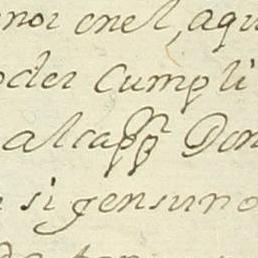 enor enel, aqu
oder Cumpli
alcapp Don
si gensuno